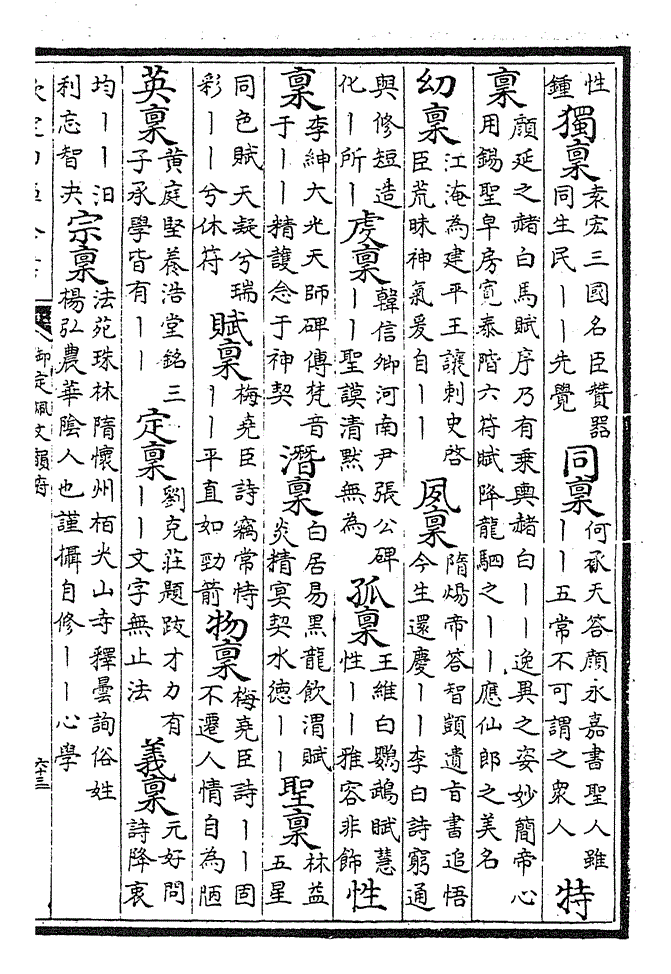 性鍾獨稟袁宏三國名臣贊器同生民丨丨先覺同稟何承天答顔永嘉書聖人雖丨丨五常不可謂之衆人特
稟顔延之赭白馬賦序乃有乘輿赭白丨丨逸異之姿妙簡帝心用錫聖皁房寛泰階六符賦降龍駟之丨丨應仙郎之美名
幼稟江淹為建平王讓刺史啓臣荒昧神氣爰自丨丨夙稟隋煬帝答智顗遺㫖書追悟今生還慶丨丨李白詩窮通
與修短造化丨所丨虔稟韓信卿河南尹張公碑丨丨聖謨清黙無為孤稟王維白鸚鵡賦慧性丨丨雅容非飾性
稟李紳大光天師碑傳梵音于丨丨精護念于神契潛稟白居易黑龍飲渭賦炎精冥契水德丨丨聖稟林益五星
同色賦天凝兮瑞彩丨丨兮休符賦稟梅堯臣詩竊常恃丨丨平直如勁箭物稟梅堯臣詩丨丨固不遷人情自為陋
英稟黄庭堅養浩堂銘三子承學皆有丨丨定稟劉克莊題跋才力有丨丨文字無止法義稟元好問詩降衷
均丨丨汩利忘智夬宗稟法苑珠林隋懷州栢尖山寺釋曇詢俗姓楊弘農華陰人也謹攝自修丨丨心學
御定佩文韻府
六十三